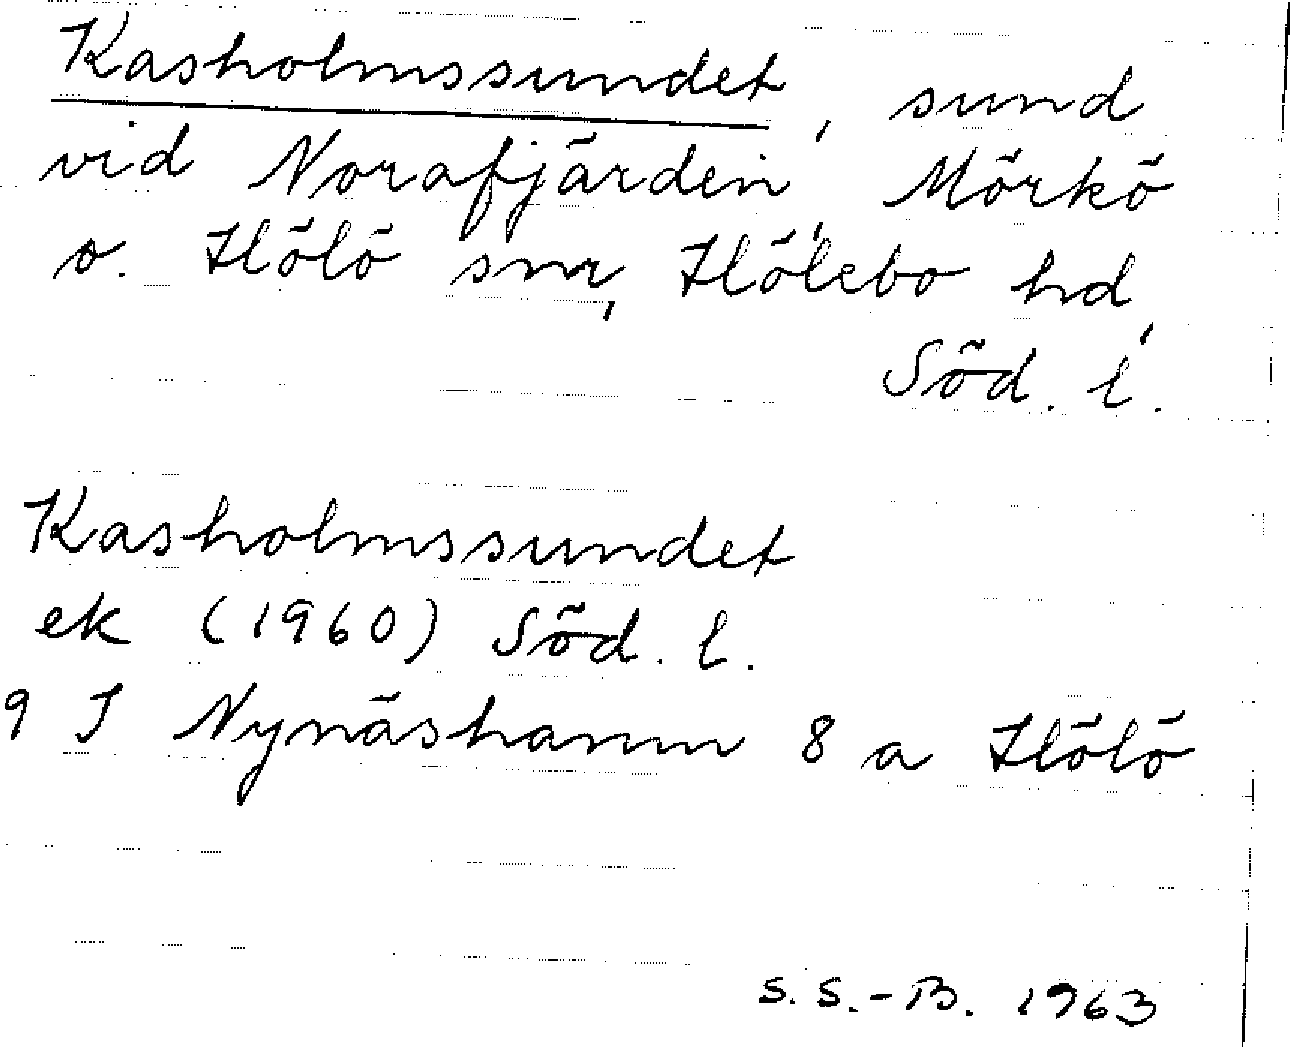 Kasholmssundet, sund
vid Norafjärden, Mörkö
o. Hölö snr, Hölebo hd,
Söd. l.
Kasholmssundet
ek (1960) Söd. l.
9 I Nynäshamn 8 a Hölö
S. S.-B. 1963